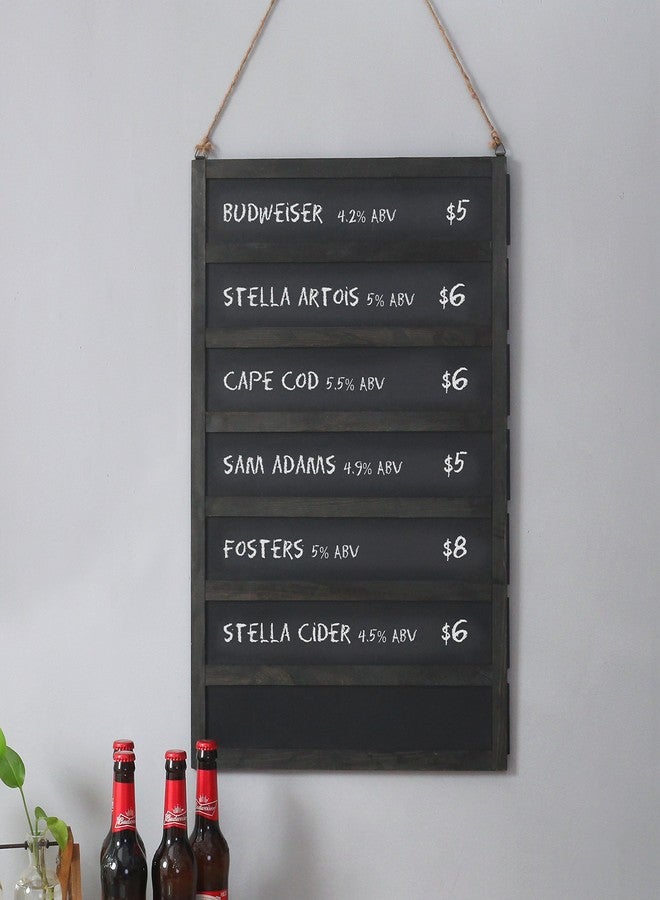 BUDWEISER 4.2% ABV $5
STELLA ARTOIS 5% ABV $6
CAPE COD 5.5% ABV $6
SAM ADAMS 4.9% ABV $5
FOSTERS 5% ABV $8
STELLA CIDER 4.5% ABV $6
Budweiser
Budweiser
Budweiser